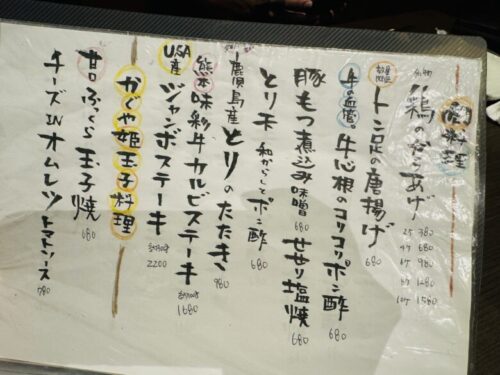 肉料理
名物 鶏のからあげ
2ケ 380
4ケ 680
6ケ 980
8ケ 1280
10ケ 1580
数量限定 トン足の唐揚げ 680
牛の血管。牛心根のコリコリポン酢 680
豚もつ煮込み味噌 680 せせり塩焼 680
とり天 和からしとポン酢 680
鹿児島産 とりのたたき 980
熊本味彩牛カルビステーキ 1680
USA産 ジャンボステーキ 2200
かぐや姫玉子料理
甘口ふっくら玉子焼 680
チーズINオムレツ トマトソース 780